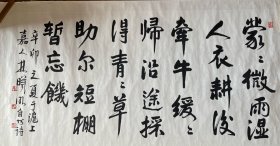 蒙々微雨湿
人衣耕後
牽牛緩々
歸沿途採
得青々草
助尔短棚
暫忘饑
辛卯之夏于滬上
嘉人